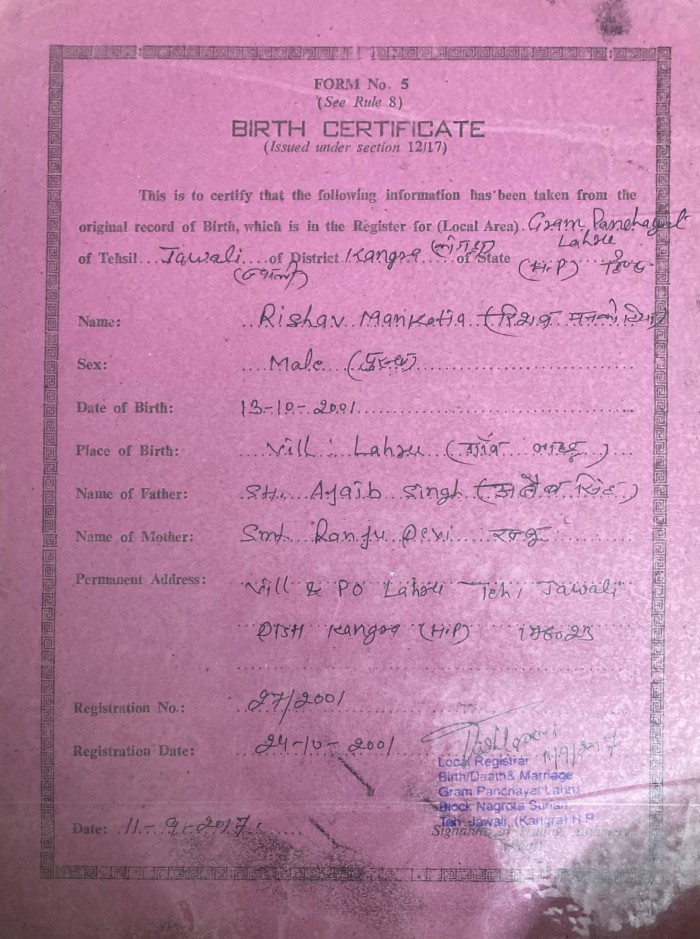 FORM No. 5
(See Rule 8)
BIRTH CERTIFICATE
(Issued under section 12/17)
This is to certify that the following information has been taken from the
original record of Birth, which is in the Register for (Local Area) Gram Panchayat
Lahru
of Tehsil Jawali of District Kangra of State (H.P)
Name: Rishav Mankotia (रिशव मनकोटिया)
Sex: Male (पुरुष)
Date of Birth: 13-10-2001
Place of Birth: Vill: Lahru (गाँव लाहडू)
Name of Father: Sh. Ajaib Singh (अजैब सिंह)
Name of Mother: Smt. Ranju Devi
Permanent Address: Vill & PO Lahru Teh. Jawali
Distt Kangra (H.P)
Registration No.: 27/2001
Registration Date: 24-10-2001
11/9/2017
Local Registrar
Birth/Death& Marriage
Gram Panchayat Lahru
Block Nagrota Surian
Teh. Jawali, (Kangra) H.P.
Date: 11-9-2017
Signature of